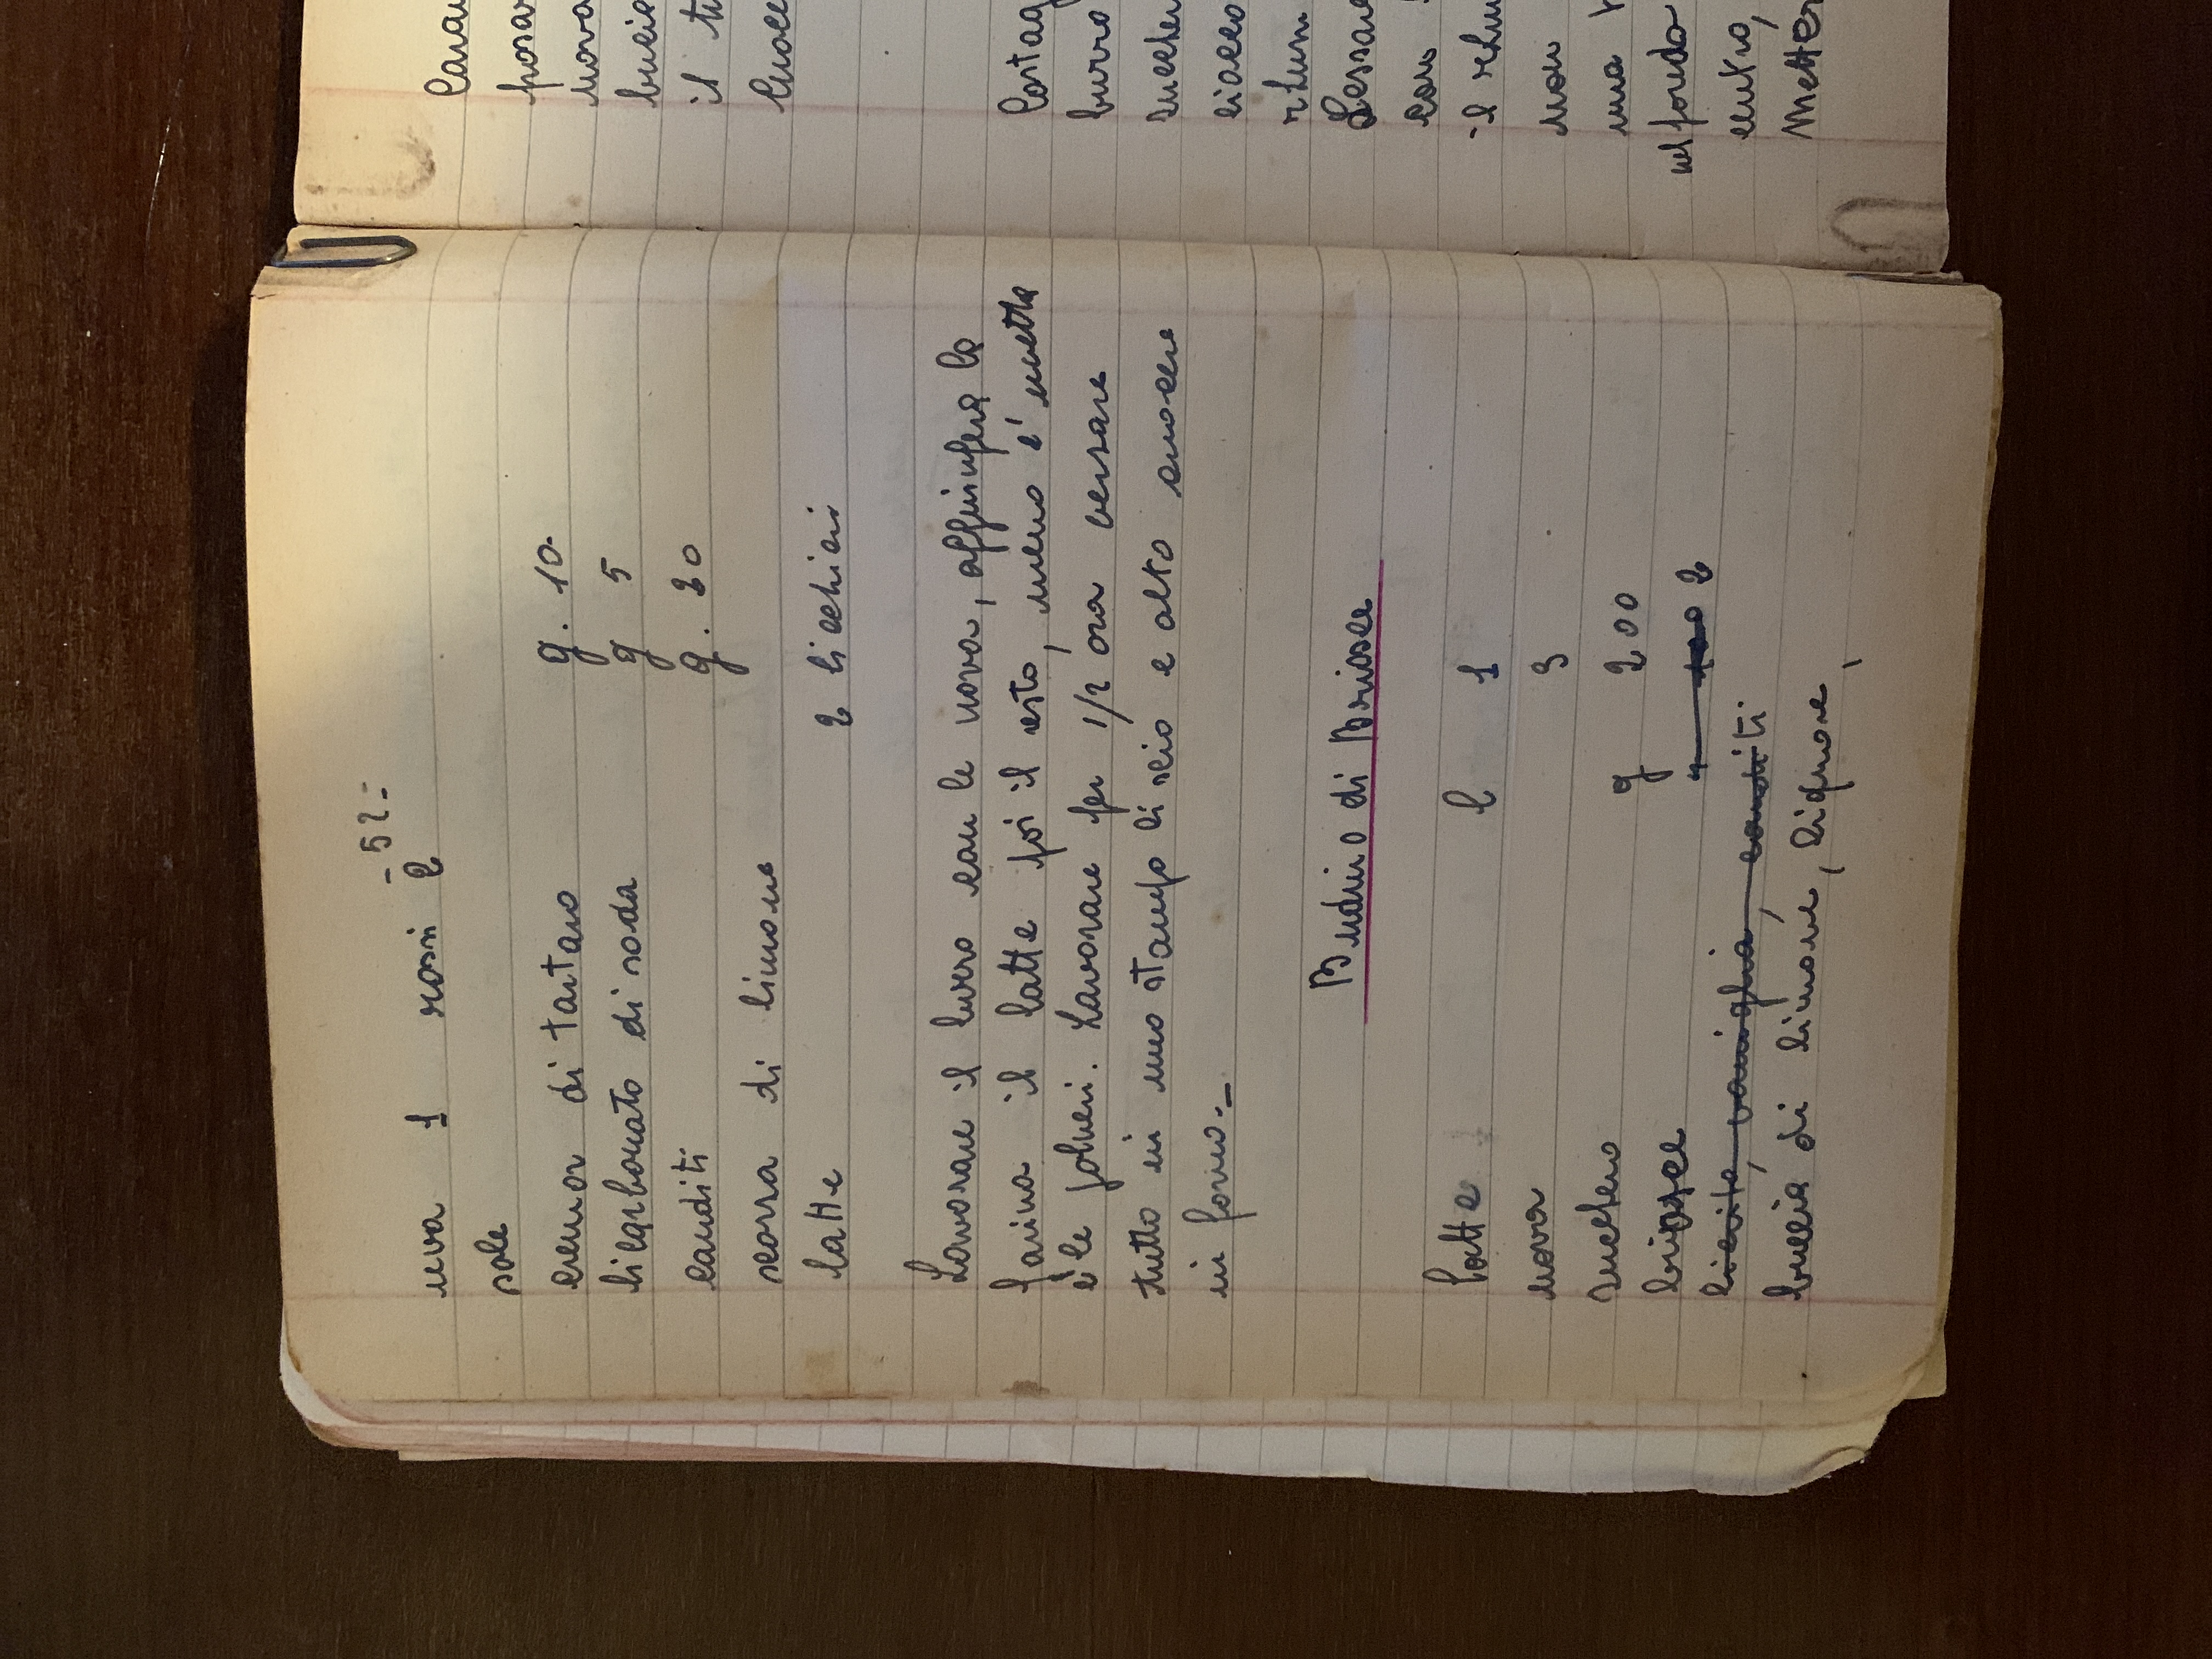 - 52 -
uova 1 rossi 2
sale
cremor di tartaro g. 10
bicarbonato di soda g 5
canditi g. 20
scorza di limone
latte 2 bicchieri
Lavorare il burro con le uova, aggiungere la
farina il latte poi il resto, meno l'uvetta
e le polveri. Lavorare per 1/2 ora versare
tutto in uno stampo liscio e alto cuocere
in forno.-
Budino di Briosce
latte l 1
uova 3
zucchero g 200
briosce " 100 2
lievito, vaniglia, canditi
buccia di limone, liquore,
posar
uova
il
burro
rhum
Lessare
con
non
una
nel fondo
centro,